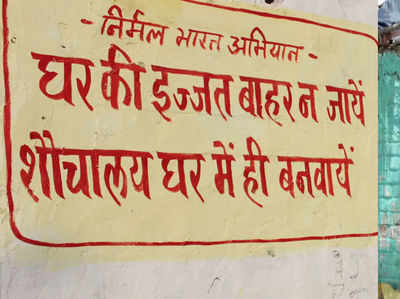 - निर्मल भारत अभियान -
घर की इज्जत बाहर न जायें
शौचालय घर में ही बनवायें